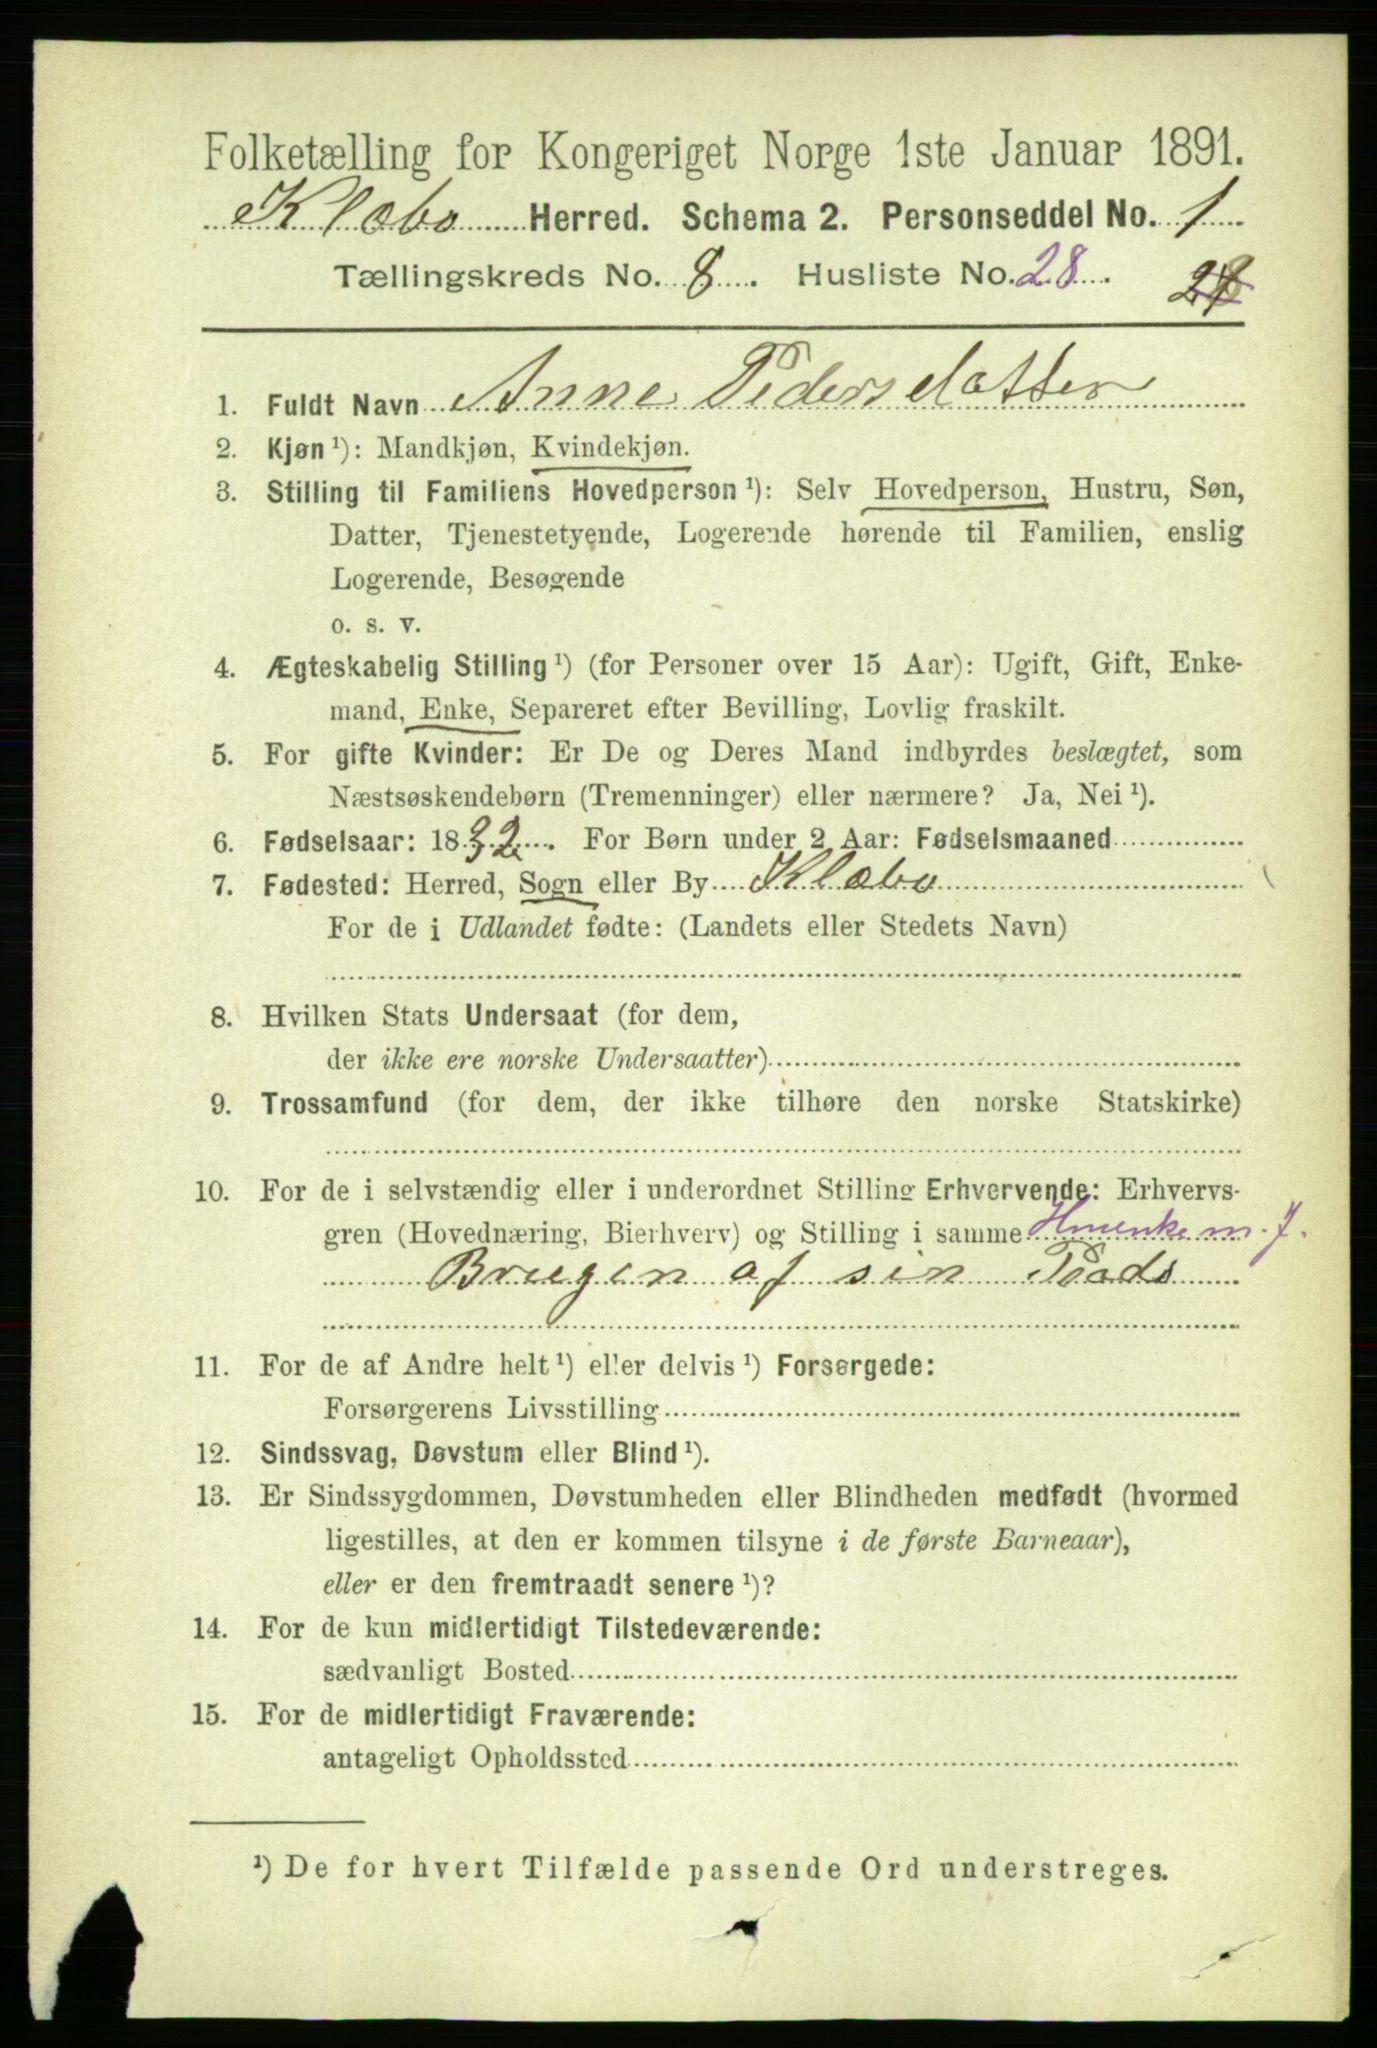 Folketælling for Kongeriget Norge 1ste Januar 1891.
Klæbo Herred. Schema 2. Personseddel No. 1
Tællingskreds No. 8. Husliste No. 28.
1. Fuldt Navn Anne Pedersdatter
2. Kjøn ¹): Mandkjøn, Kvindekjøn.
3. Stilling til Familiens Hovedperson ¹): Selv Hovedperson, Hustru, Søn,
Datter, Tjenestetyende, Logerende hørende til Familien, enslig
Logerende, Besøgende
o. s. v.
4. Ægteskabelig Stilling ¹) (for Personer over 15 Aar): Ugift, Gift, Enke-
mand, Enke, Separeret efter Bevilling, Lovlig fraskilt.
5. For gifte Kvinder: Er De og Deres Mand indbyrdes beslægtet, som
Næstsøskendebørn (Tremenninger) eller nærmere? Ja, Nei ¹).
6. Fødselsaar: 1832. For Børn under 2 Aar: Fødselsmaaned
7. Fødested: Herred, Sogn eller By Klæbo
For de i Udlandet fødte: (Landets eller Stedets Navn)
8. Hvilken Stats Undersaat (for dem,
der ikke ere norske Undersaatter)
9. Trossamfund (for dem, der ikke tilhøre den norske Statskirke)
10. For de i selvstændig eller i underordnet Stilling Erhvervende: Erhvervs-
gren (Hovednæring, Bierhverv) og Stilling i samme Hmenke m. J.
Brugen af sin Plads
11. For de af Andre helt ¹) eller delvis ¹) Forsørgede:
Forsørgerens Livsstilling
12. Sindssvag, Døvstum eller Blind ¹).
13. Er Sindssygdommen, Døvstumheden eller Blindheden medfødt (hvormed
ligestilles, at den er kommen tilsyne i de første Barneaar),
eller er den fremtraadt senere ¹)?
14. For de kun midlertidigt Tilstedeværende:
sædvanligt Bosted
15. For de midlertidigt Fraværende:
antageligt Opholdssted
¹) De for hvert Tilfælde passende Ord understreges.